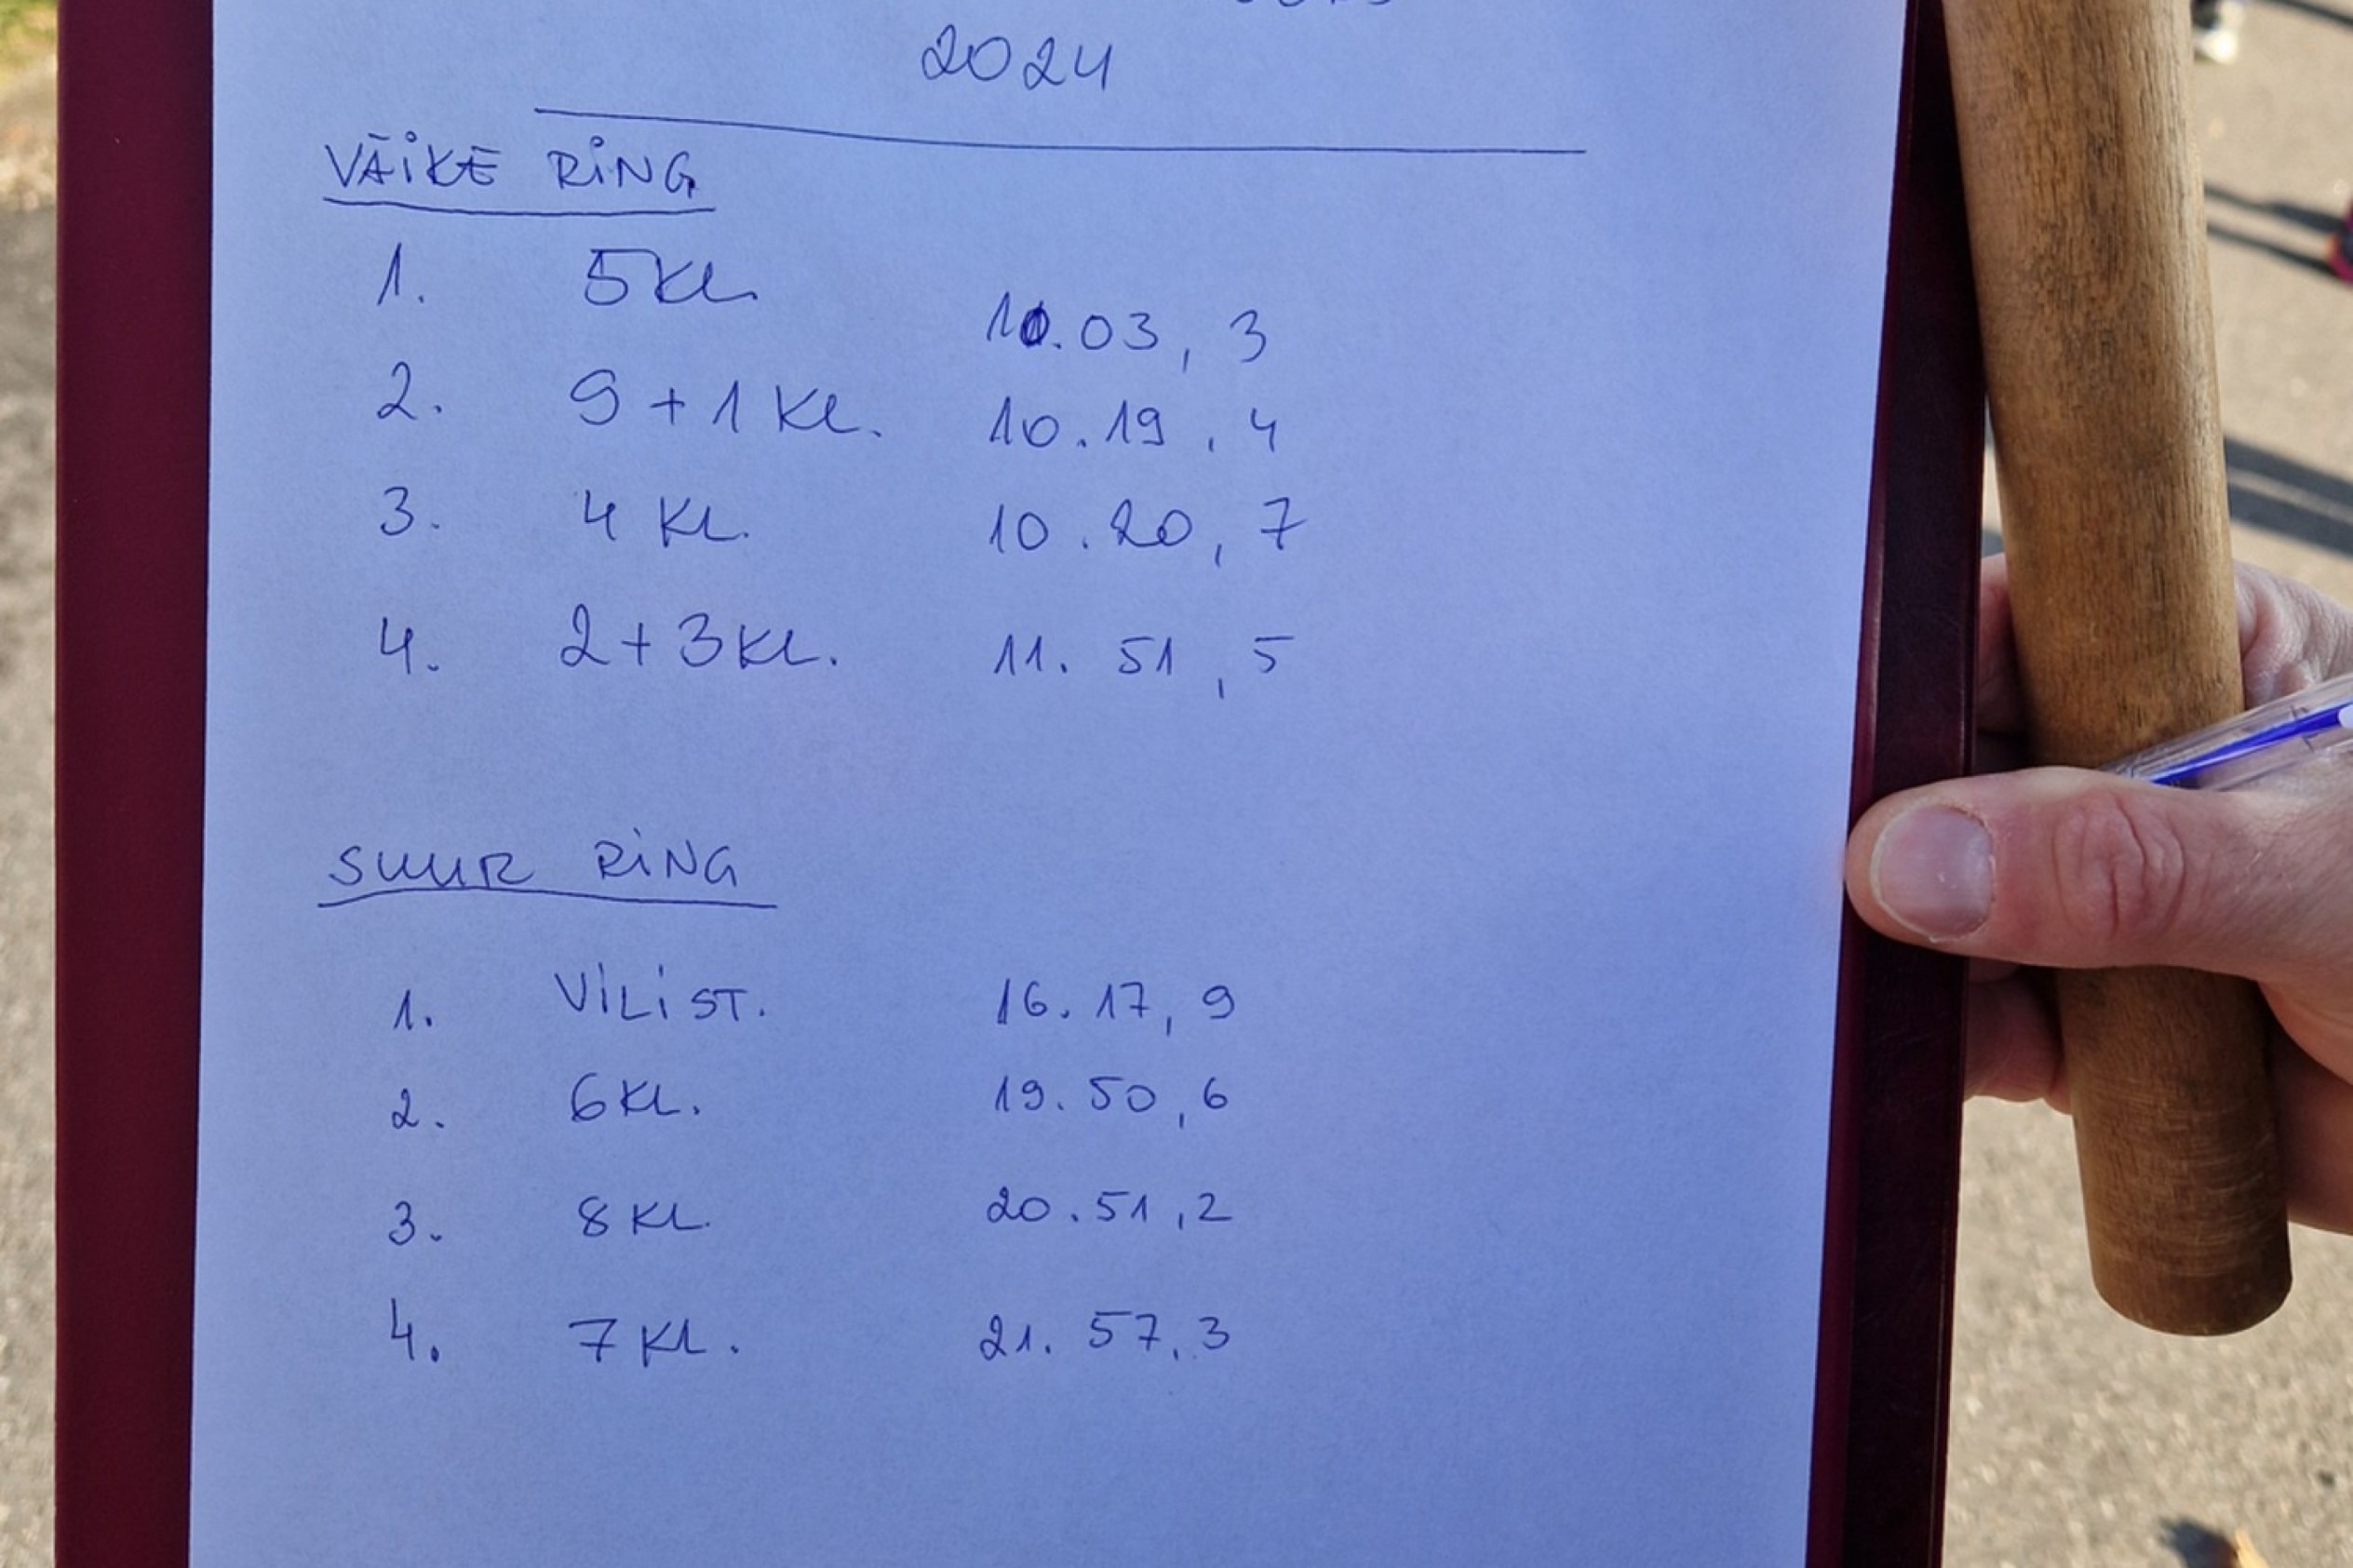 2024
VÄIKE RING
1. 5 KL. 10.03, 3
2. 9 + 1 KL. 10.19, 4
3. 4 KL. 10.20, 7
4. 2 + 3 KL. 11.51, 5
SUUR RING
1. VILIST. 16.17, 9
2. 6 KL. 19.50, 6
3. 8 KL. 20.51, 2
4. 7 KL. 21.57, 3